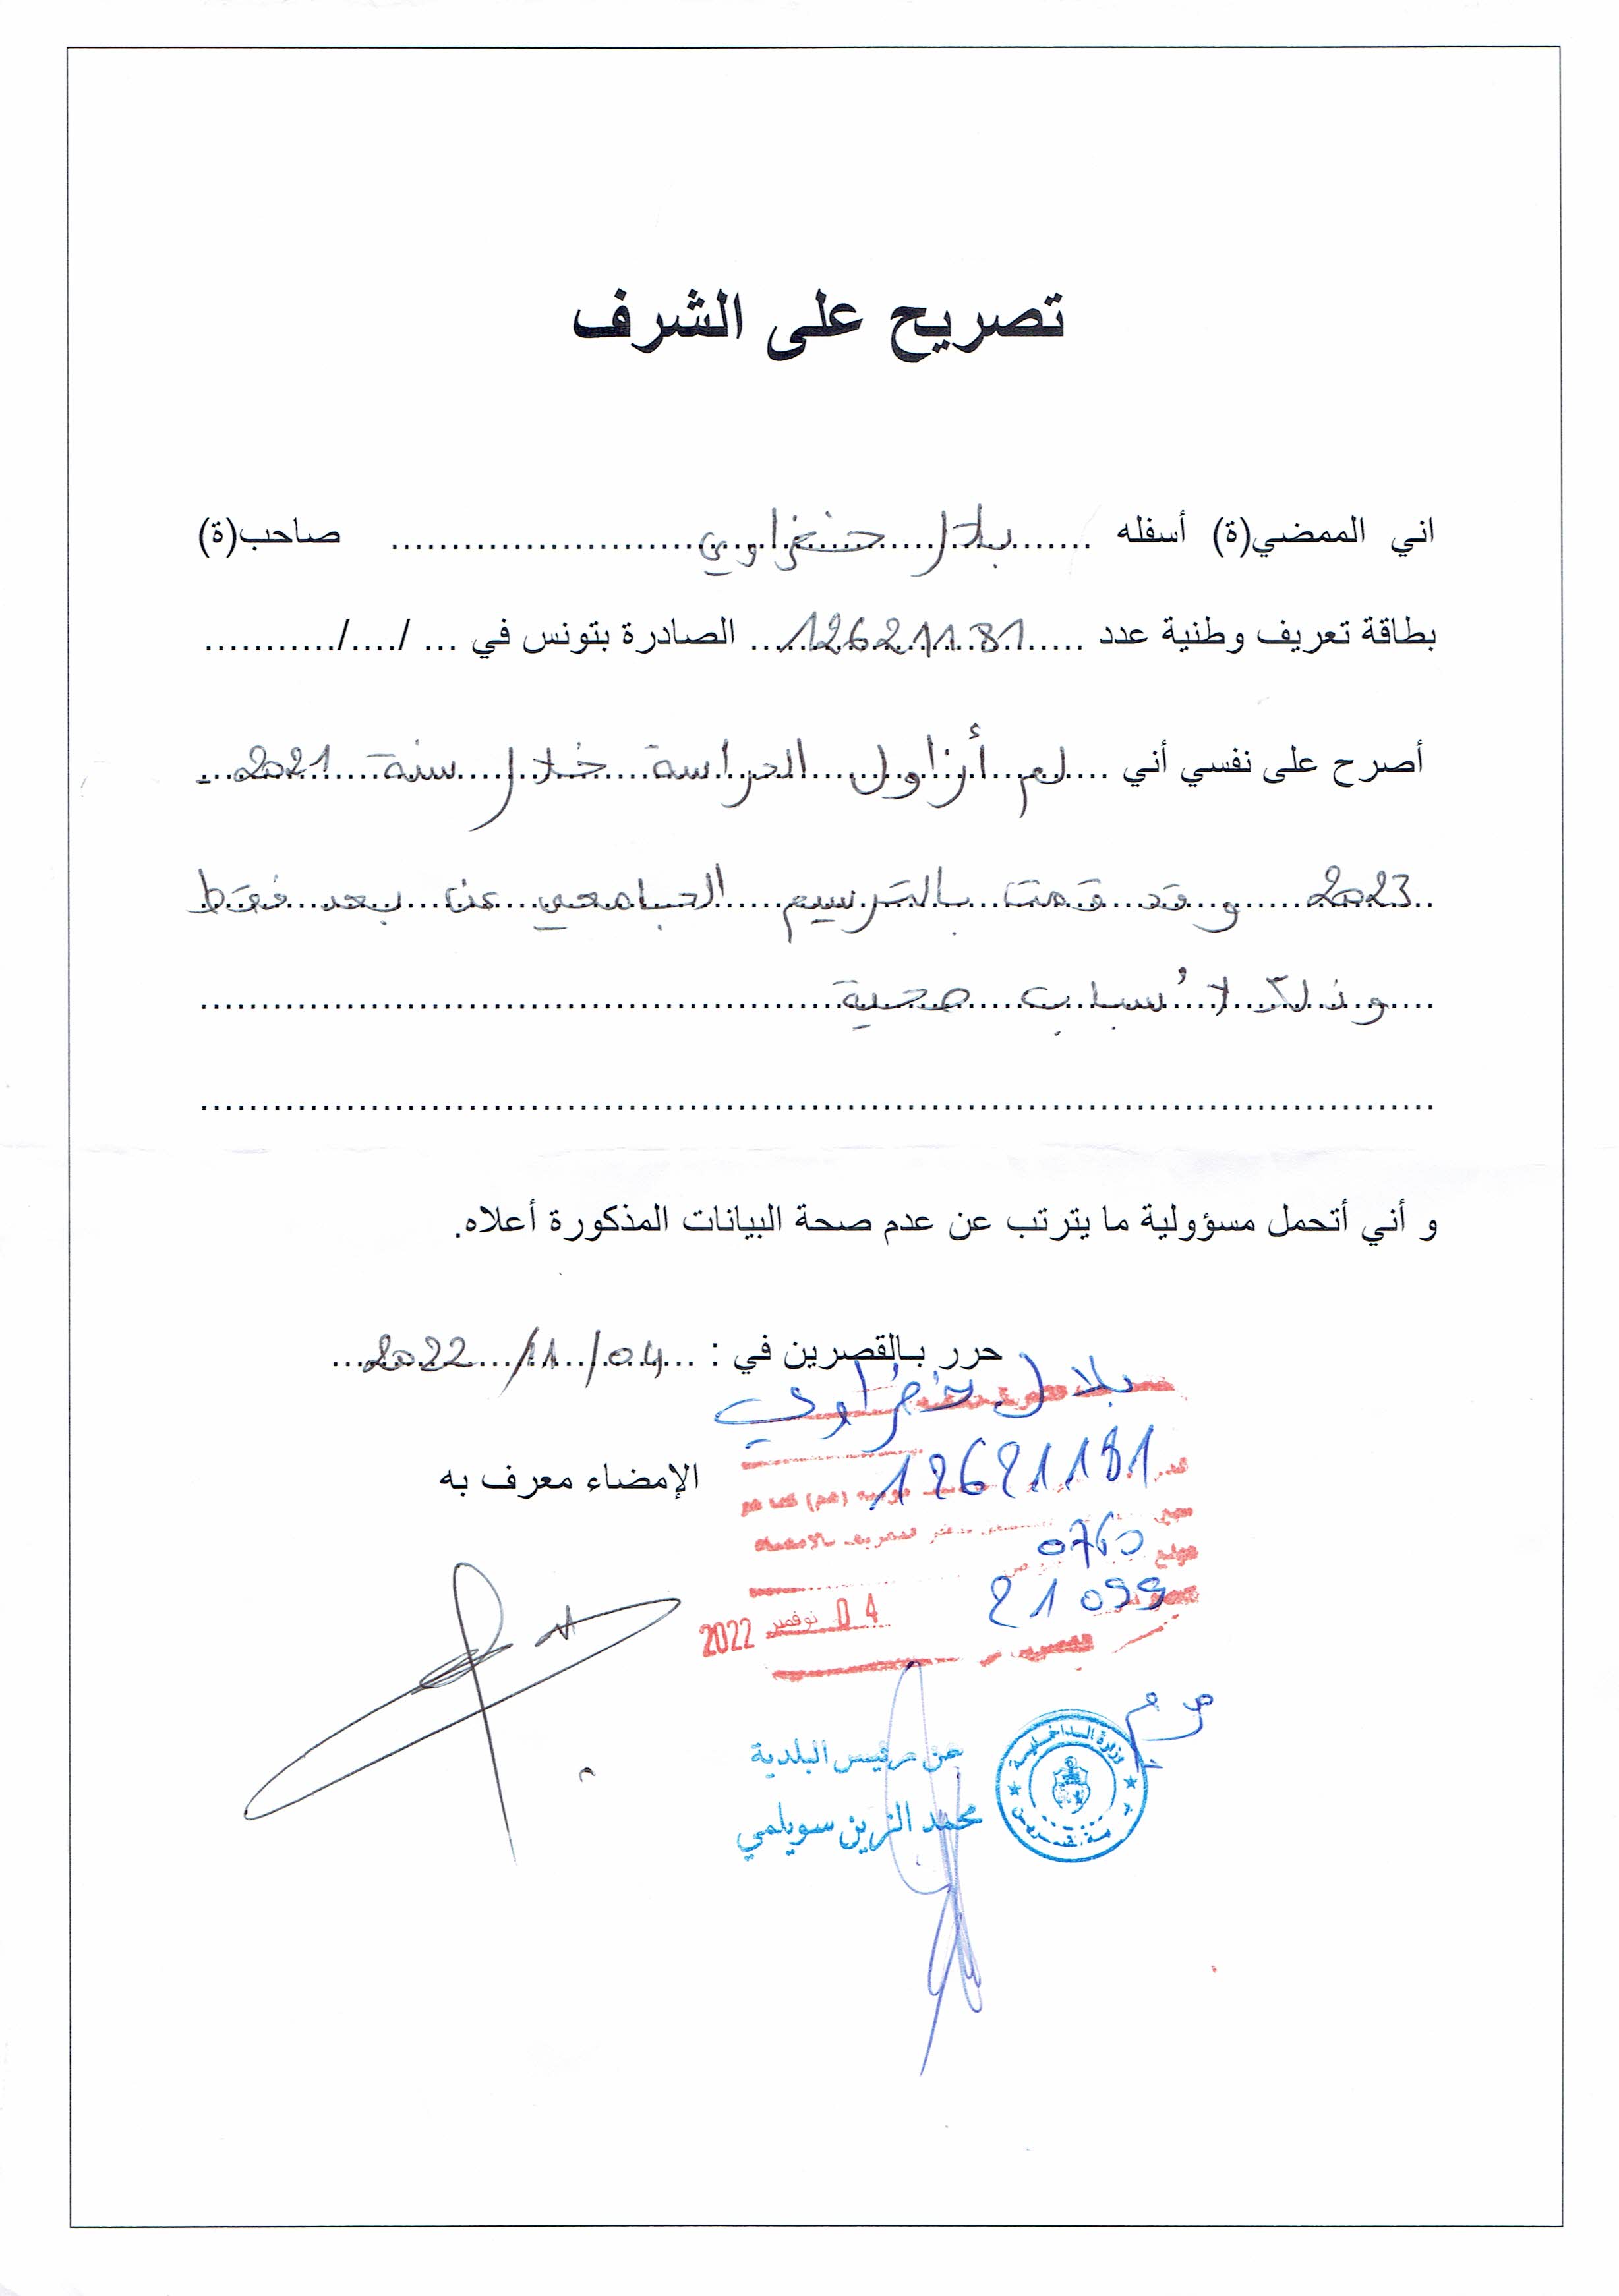 تصريح على الشرف
اني الممضي(ة) أسفله بلال خضراوي صاحب(ة)
بطاقة تعريف وطنية عدد 12621181 الصادرة بتونس في ... /..../...........
أصرح على نفسي أني لم أزاول الدراسة خلال سنة 2021 -
2023 و قد قمت بالترسيم الجامعي عن بعد فقط
و ذلك لأسباب صحية
و أني أتحمل مسؤولية ما يترتب عن عدم صحة البيانات المذكورة أعلاه.
حرر بالقصرين في : 04/11/2022
بلال خضراوي
12621181
الإمضاء معرف به
0760
21099
04 نوفمبر 2022
القصرين
وزارة الداخلية
عن رئيس البلدية
محمد الزين سويلمي